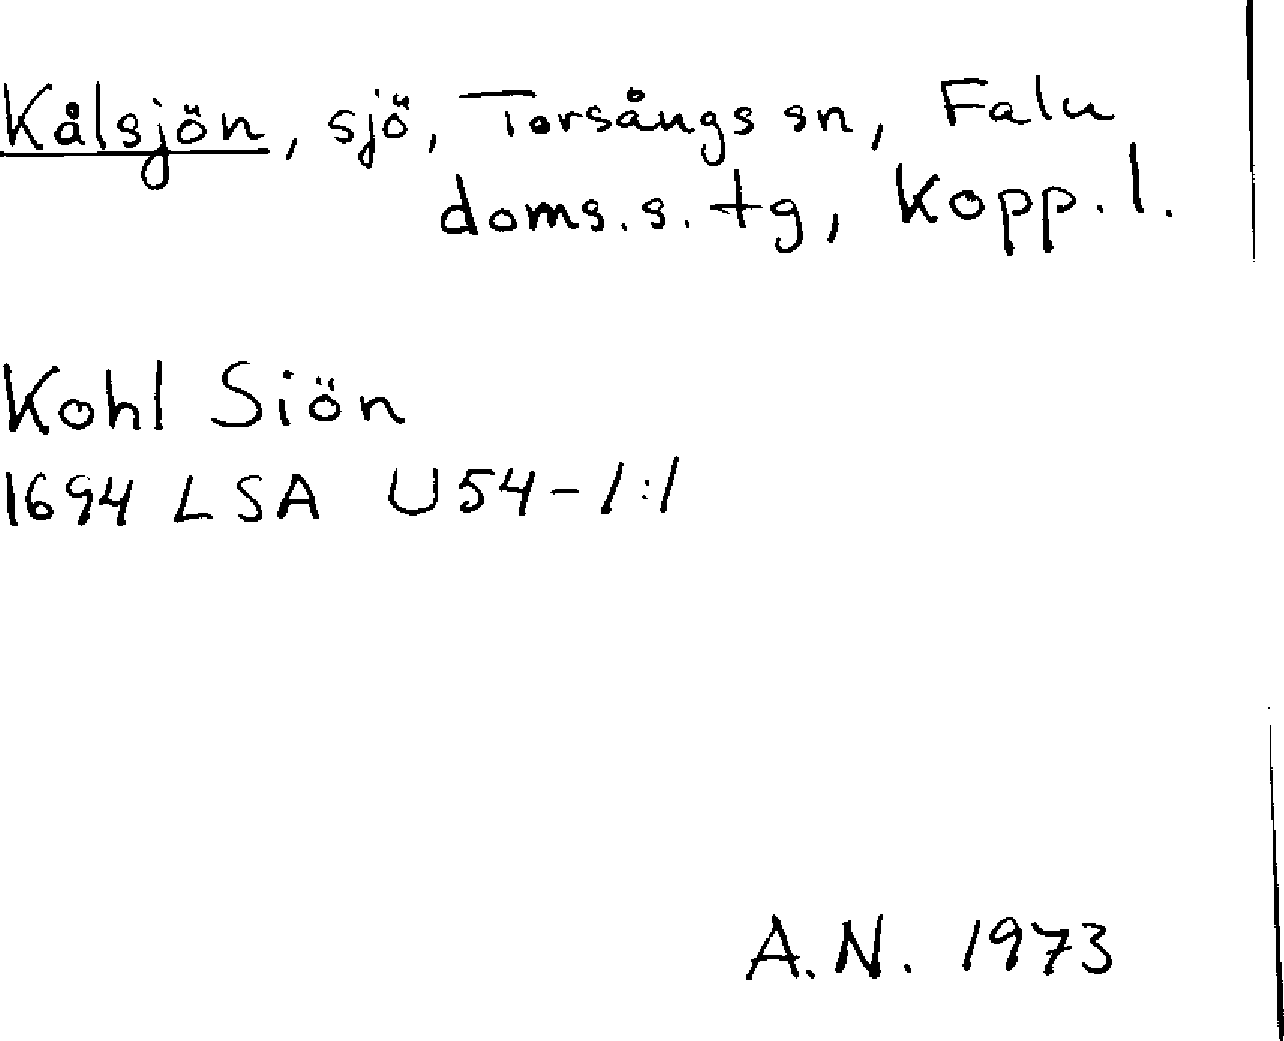 Kålsjön, sjö, Torsångs sn, Falu
doms.s. tg, Kopp. l.
Kohl Siön
1694 LSA U54-1:1
A.N. 1973